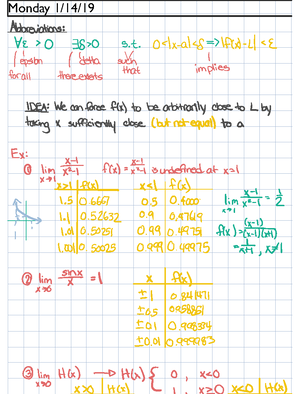 Monday 1/14/19
Abbreviations:
∀ε > 0 ∃δ>0 s.t. 0<|x-a|<δ => |f(x)-L| < ε
epsilon delta such implies
for all there exists that
IDEA: We can force f(x) to be arbitrarily close to L by
taking x sufficiently close (but not equal) to a
Ex:
① lim x→1 x-1/x²-1 f(x)= x-1/x²-1 is undefined at x=1
x>1 f(x) x<1 f(x)
1.5 0.6667 0.5
1.1 0.52632 0.9
1.01 0.50251 0.99 0.49751
1.001 0.50025 0.999 0.49975
lim x→1 x-1/x²-1 = 1/2
f(x)= (x-1)/(x-1)(x+1)
= 1/x+1, x≠1
② lim x→0 sinx/x = 1
x f(x)
±1 0.841471
±0.5 0.958851
±0.1 0.998334
±0.01 0.999983
③ lim x→0 H(x) → H(x) { 0, x<0
1, x≥0
x>0 H(x) x<0 H(x)